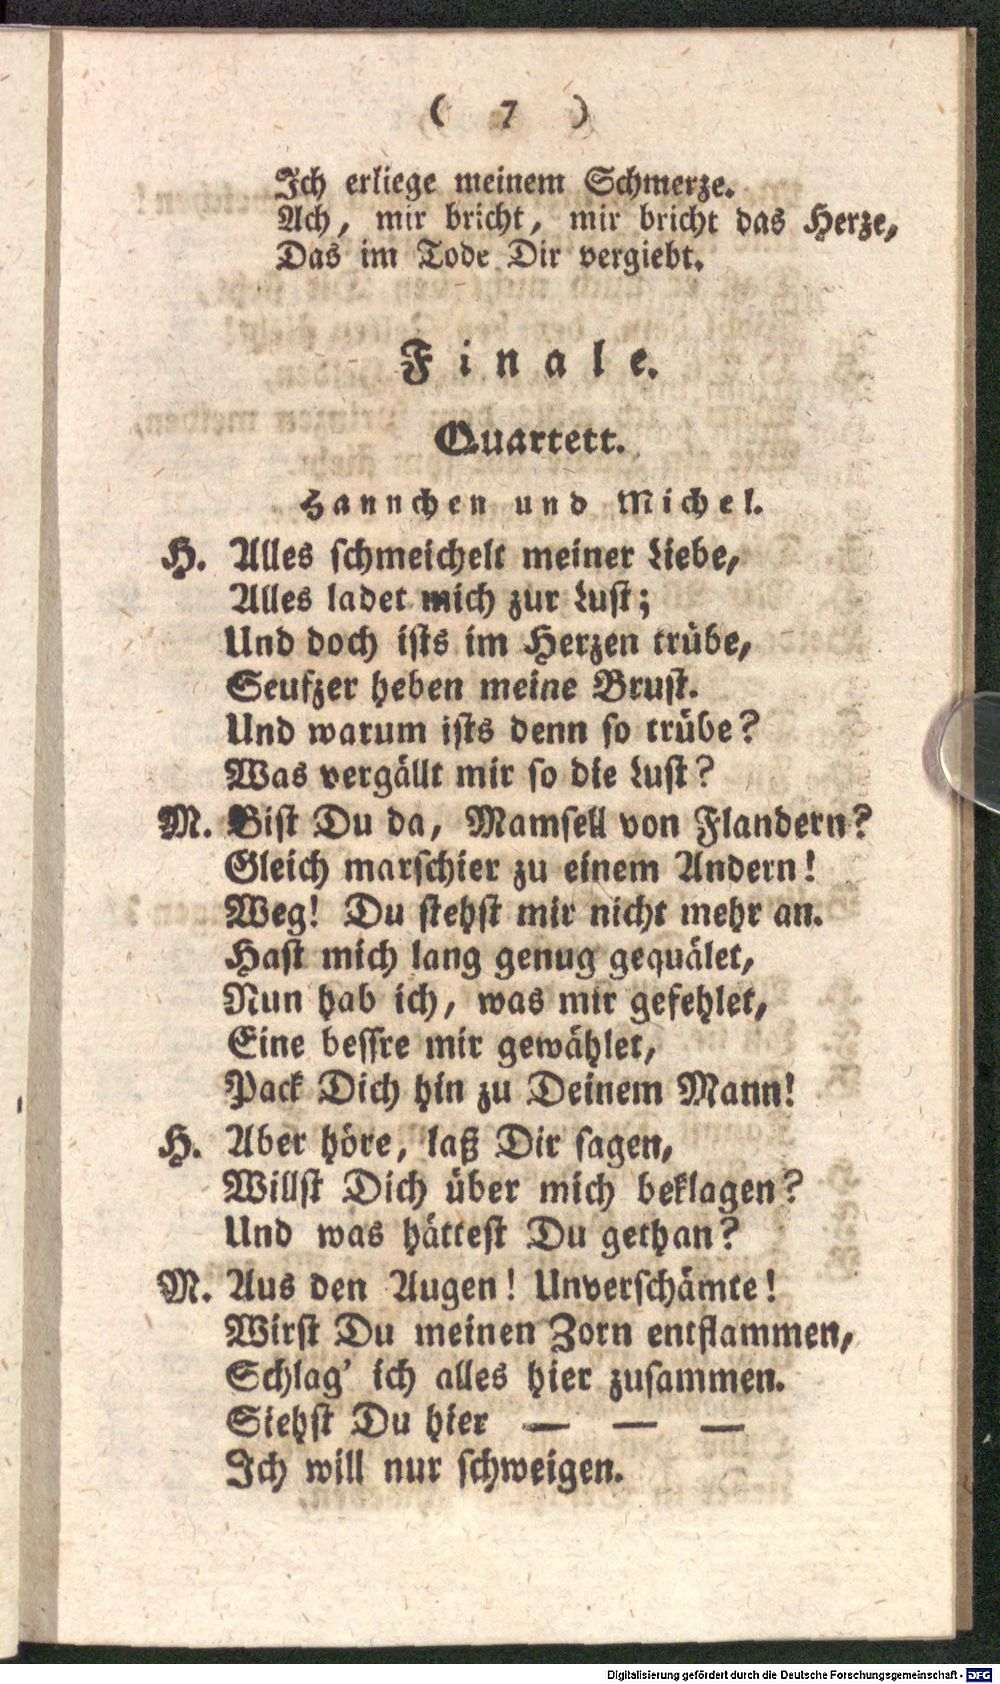 ( 7 )
Ich erliege meinem Schmerze.
Ach, mir bricht, mir bricht das Herze,
Das im Tode Dir vergiebt.
Finale.
Quartett.
Hannchen und Michel.
H. Alles schmeichelt meiner Liebe,
Alles ladet mich zur Lust;
Und doch ists im Herzen trübe,
Seufzer heben meine Brust.
Und warum ists denn so trübe?
Was vergällt mir so die Lust?
M. Bist Du da, Mamsell von Flandern?
Gleich marschier zu einem Andern!
Weg! Du stehst mir nicht mehr an.
Hast mich lang genug gequälet,
Nun hab ich, was mir gefehlet,
Eine bessre mir gewählet,
Pack Dich hin zu Deinem Mann!
H. Aber höre, laß Dir sagen,
Willst Dich über mich beklagen?
Und was hättest Du gethan?
M. Aus den Augen! Unverschämte!
Wirst Du meinen Zorn entflammen,
Schlag' ich alles hier zusammen.
Siehst Du hier — — —
Ich will nur schweigen.
Digitalisierung gefördert durch die Deutsche Forschungsgemeinschaft - DFG